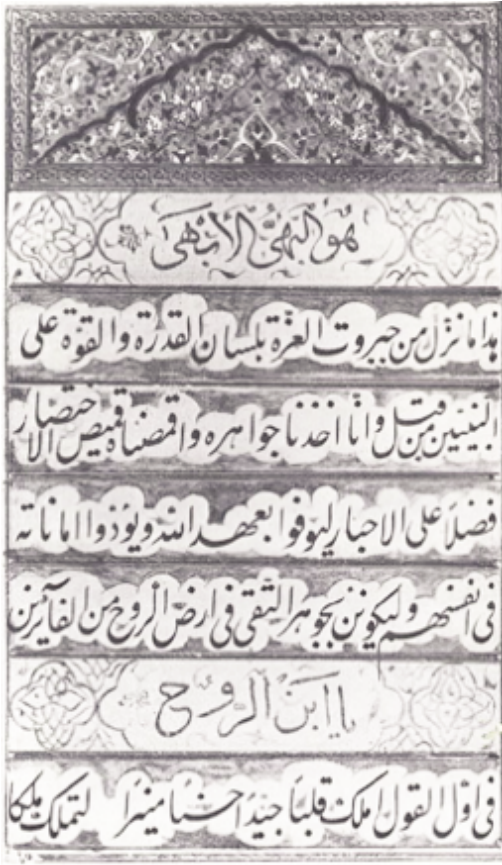 هو البهیّ الأبهی
هذا ما نزّل من جبروت العزّة بلسان القدرة والقوّة علی
النبیّین من قبل وانّا اخذنا جواهره واقمصناه قمیص الاختصار
فضلاً علی الاحبار لیوفوا بعهد الله ویؤدّوا اماناته
فی انفسهم ولیکوننّ بجوهر التّقی فی ارض الرّوح من الفائزین
یا ابن الرّوح
فی اوّل القول املک قلباً جیّداً حسناً منیراً لتملک ملکاً